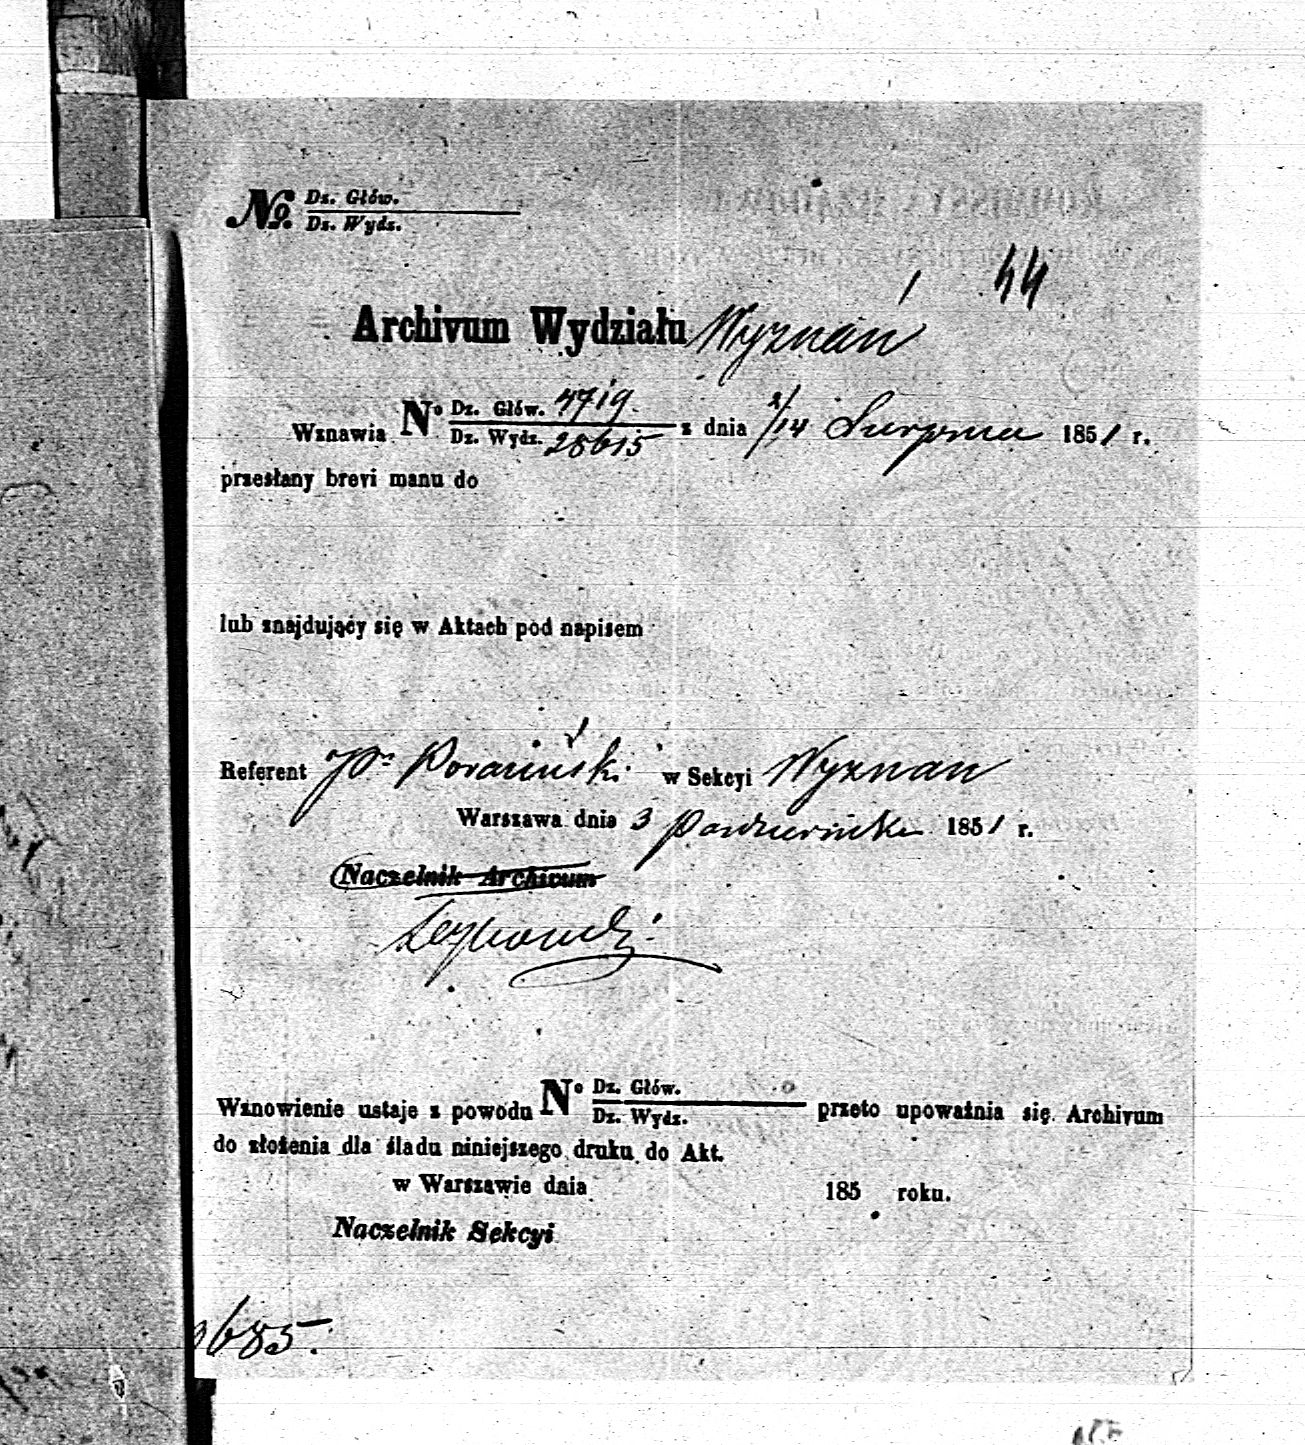 No. Dz. Głów.
Dz. Wydz.
44
Archivum Wydziału Wyznań
Wznawia No Dz. Głów. 4719 z dnia 2/14 Sierpnia 1851 r.
Dz. Wydz. 28615
przesłany brevi manu do
lub znajdujący się w Aktach pod napisem
Referent JP. Poraziński w Sekcyi Wyznań
Warszawa dnia 3 Października 1851 r.
Naczelnik Archivum
Wznowienie ustaje z powodu No Dz. Głów. przeto upoważnia się Archivum
Dz. Wydz.
do złożenia dla śladu niniejszego druku do Akt.
w Warszawie dnia 185 roku.
Naczelnik Sekcyi
685.